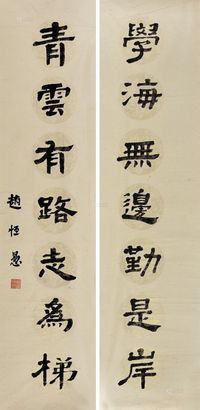 學海無邊勤是岸
青雲有路志為梯
趙恒惖